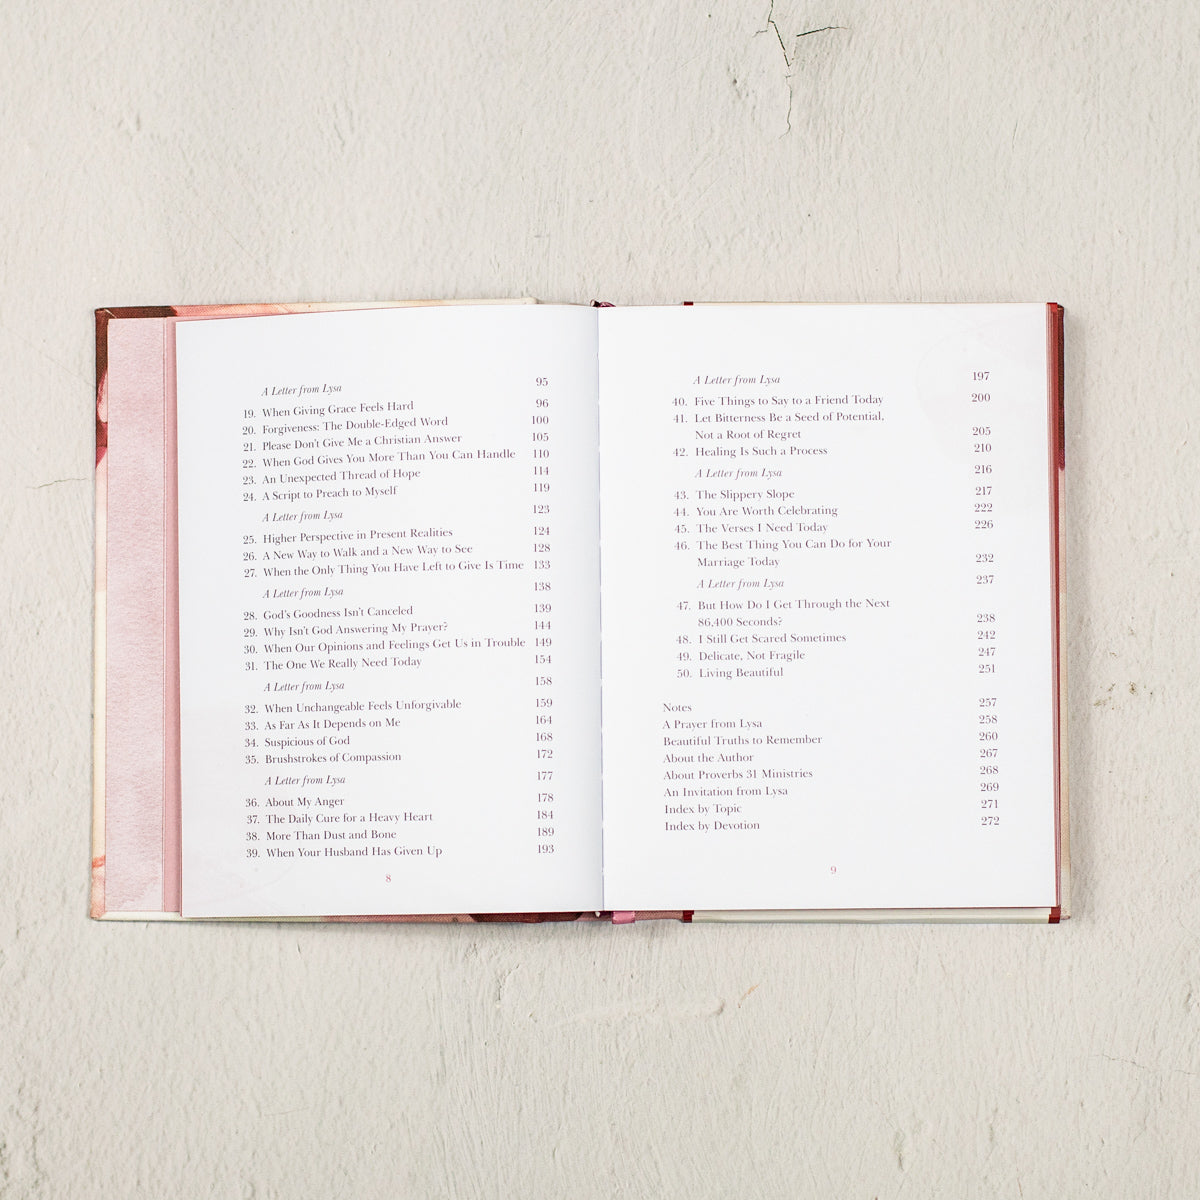 A Letter from Lysa 95
19. When Giving Grace Feels Hard 96
20. Forgiveness: The Double-Edged Word 100
21. Please Don't Give Me a Christian Answer 105
22. When God Gives You More Than You Can Handle 110
23. An Unexpected Thread of Hope 114
24. A Script to Preach to Myself 119
A Letter from Lysa 123
25. Higher Perspective in Present Realities 124
26. A New Way to Walk and a New Way to See 128
27. When the Only Thing You Have Left to Give Is Time 133
A Letter from Lysa 138
28. God's Goodness Isn't Canceled 139
29. Why Isn't God Answering My Prayer? 144
30. When Our Opinions and Feelings Get Us in Trouble 149
31. The One We Really Need Today 154
A Letter from Lysa 158
32. When Unchangeable Feels Unforgivable 159
33. As Far As It Depends on Me 164
34. Suspicious of God 168
35. Brushstrokes of Compassion 172
A Letter from Lysa 177
36. About My Anger 178
37. The Daily Cure for a Heavy Heart 184
38. More Than Dust and Bone 189
39. When Your Husband Has Given Up 193
8
A Letter from Lysa 197
40. Five Things to Say to a Friend Today 200
41. Let Bitterness Be a Seed of Potential,
Not a Root of Regret 205
42. Healing Is Such a Process 210
A Letter from Lysa 216
43. The Slippery Slope 217
44. You Are Worth Celebrating 222
45. The Verses I Need Today 226
46. The Best Thing You Can Do for Your
Marriage Today 232
A Letter from Lysa 237
47. But How Do I Get Through the Next
86,400 Seconds? 238
48. I Still Get Scared Sometimes 242
49. Delicate, Not Fragile 247
50. Living Beautiful 251
Notes 257
A Prayer from Lysa 258
Beautiful Truths to Remember 260
About the Author 267
About Proverbs 31 Ministries 268
An Invitation from Lysa 269
Index by Topic 271
Index by Devotion 272
9